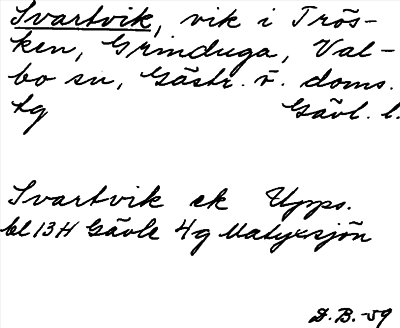 Svartvik, vik i Trös-
ken, Grinduga, Val-
bo sn, Gästr. ö. doms.
tg Gävl. l.
Svartvik ek Upps.
bl 13H Gävle 4g Matyxsjön
D.B. -59